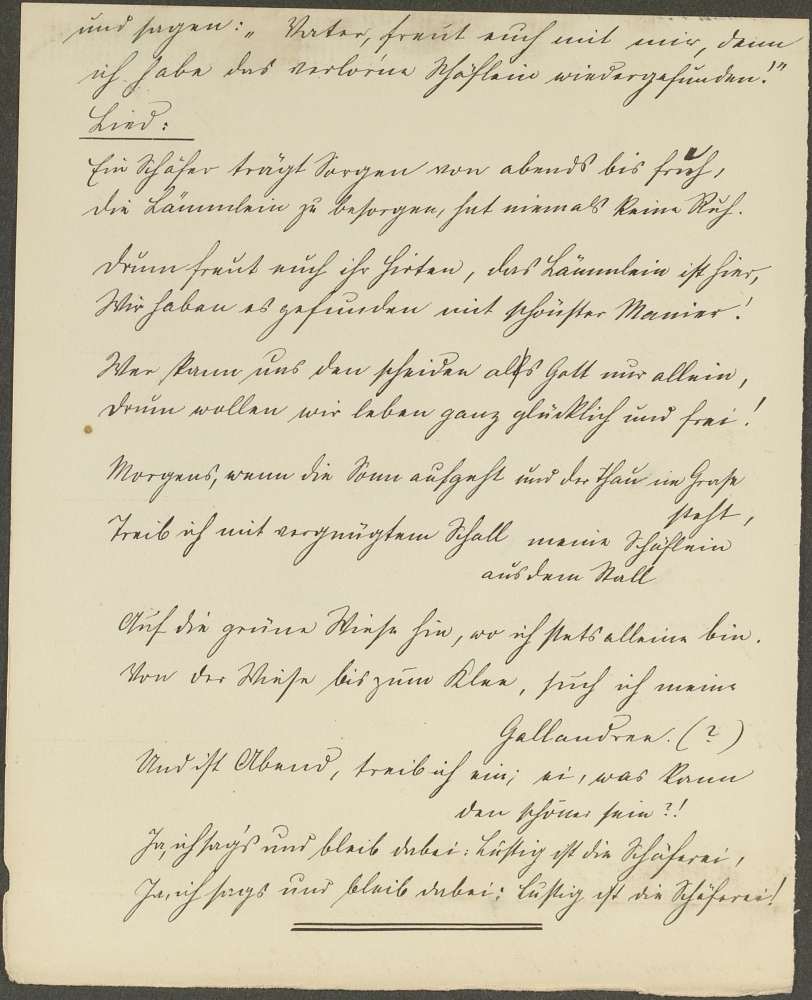 und sagen: „ Vater, freut euch mit mir, denn
ich habe das verlor'ne Schäflein wiedergefunden!"
Lied:
Ein Schäfer trägt Sorgen von abends bis früh,
die Lämmlein zu besorgen, hat niemals keine Ruh.
Drum freut euch ihr Hirten, das Lämmlein ist hier,
Wir haben es gefunden mit schönster Manier!
Wer kann uns den scheiden als Gott nur allein,
Drum wollen wir leben ganz glücklich und frei!
Morgens, wenn die Sonn aufgeht und der Thau im Grase
steht,
Treib ich mit vergnügtem Schall meine Schäflein
aus dem Stall
Auf die grüne Wiese hin, wo ich stets alleine bin.
Von der Wiese bis zum Klee, such ich meine
Gallandree. (?)
Und ist Abend, treib ich ein; ei, was kann
den schöner sein?!
Ja, ich sag's und bleib dabei: Lustig ist die Schäferei,
Ja, ich sags und bleib dabei: Lustig ist die Schäferei!